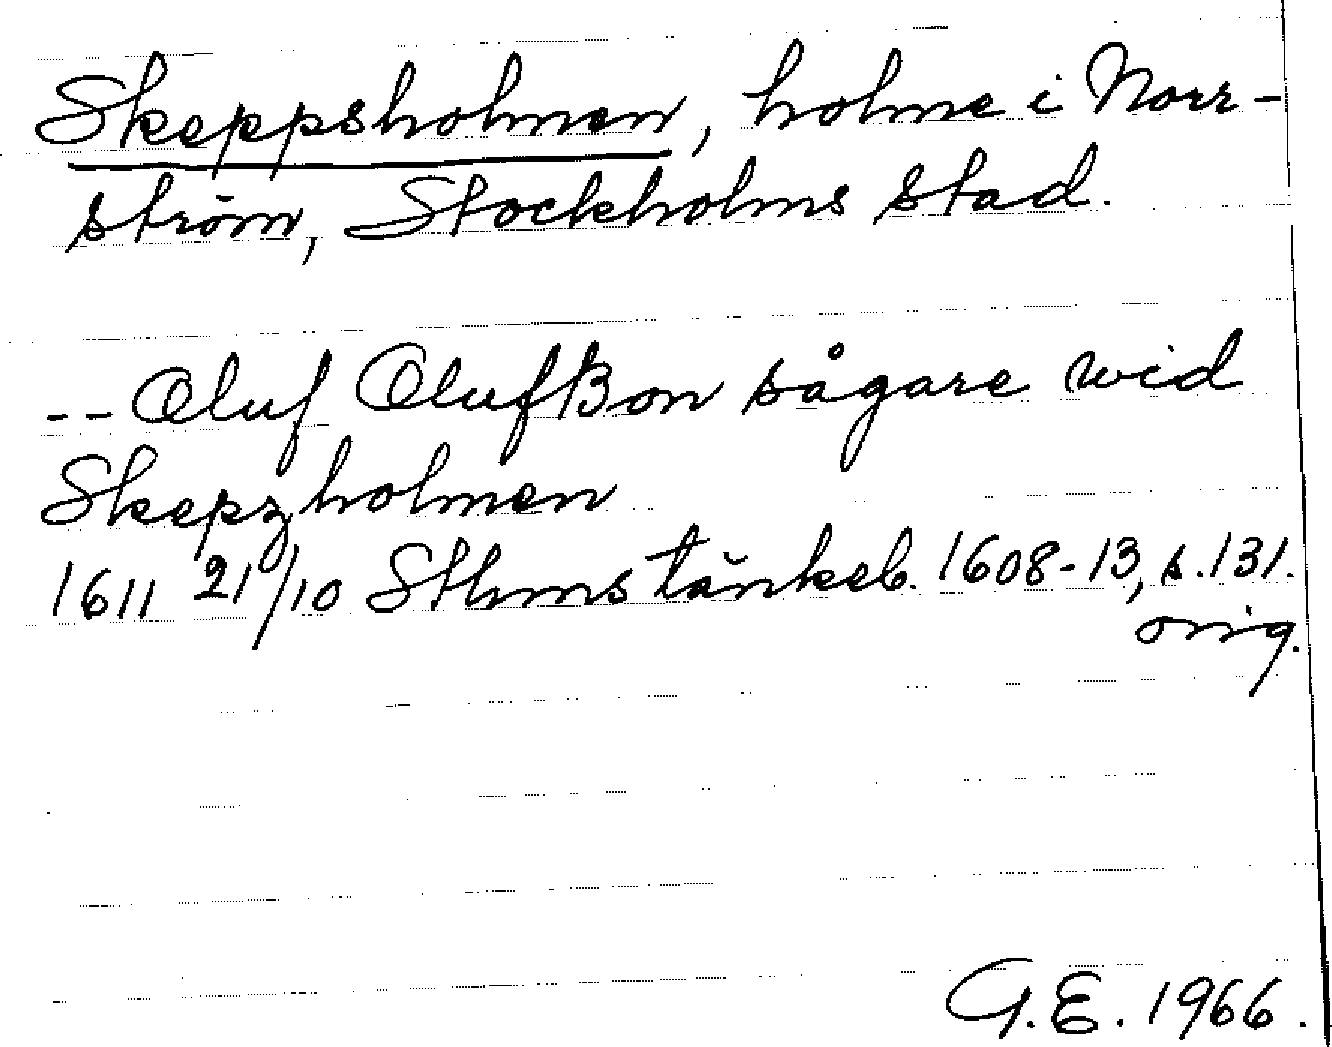 Skeppsholmen, holme i Norr-
ström, Stockholms stad.
-- Oluf Olufßon sågare wid
Skepzholmen
1611 21/10 Sthms tänkeb. 1608-13, s. 131.
orig.
G.E. 1966.